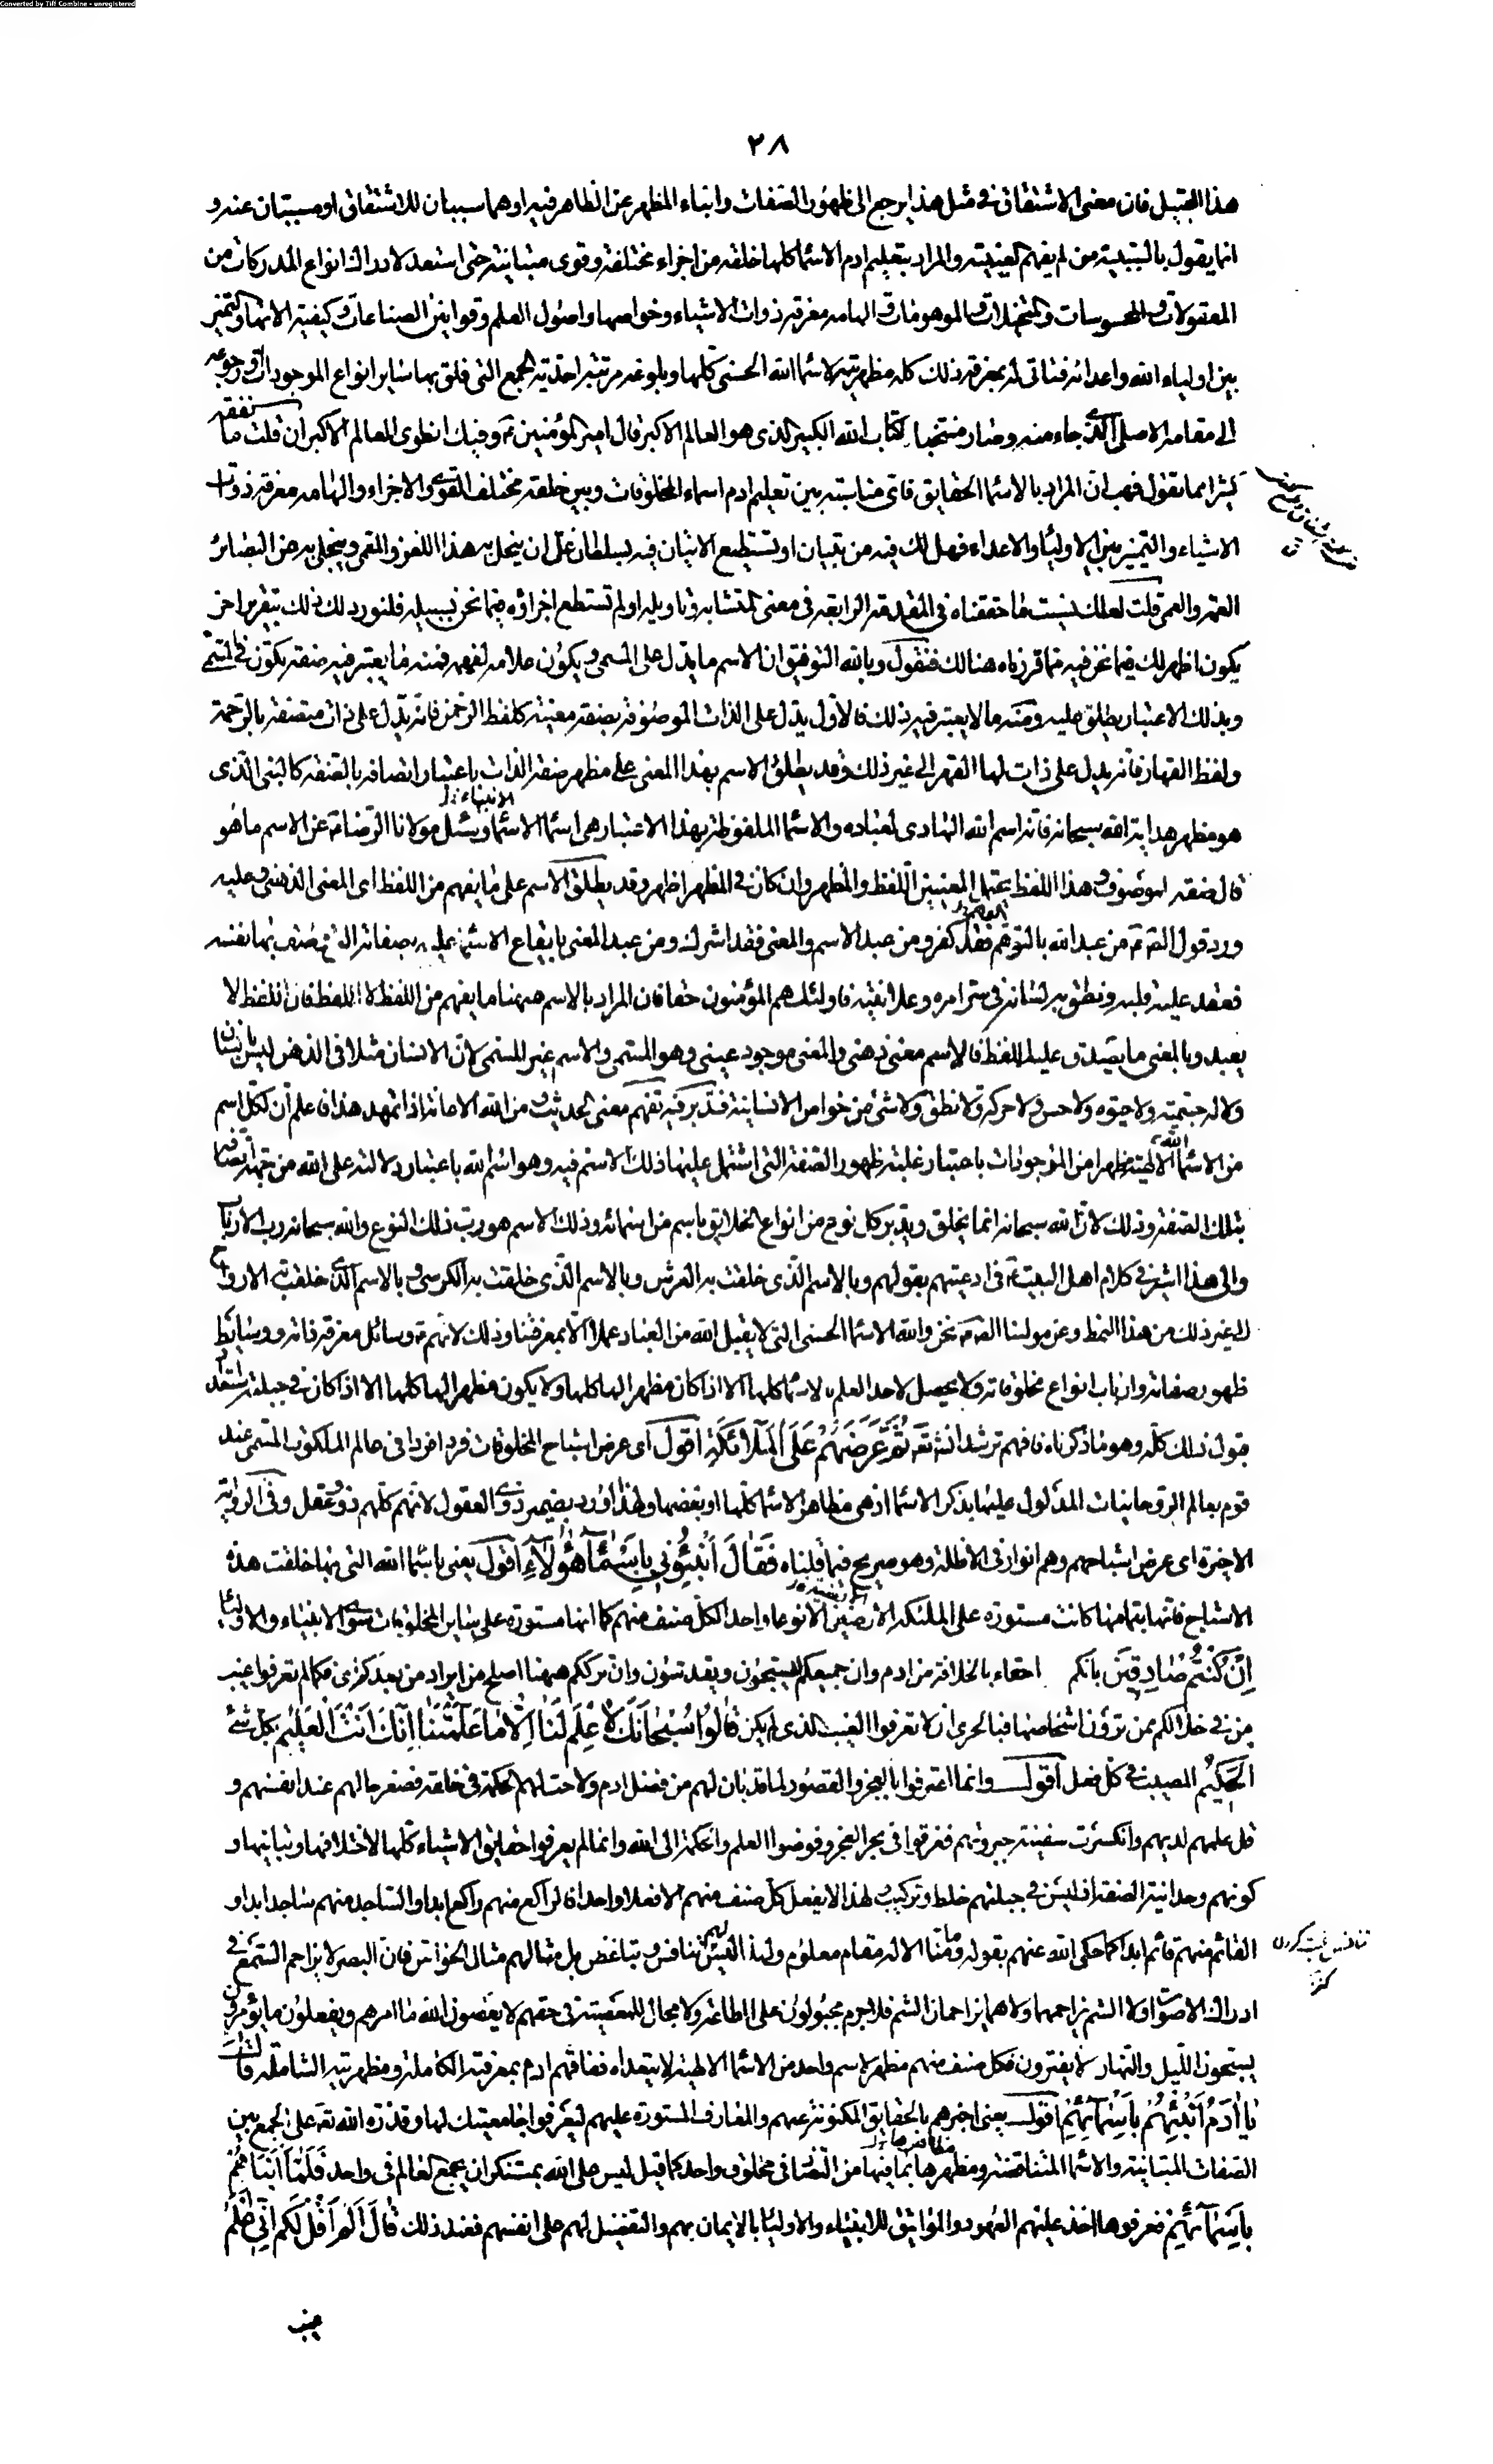 Converted by Tiff Combine - unregistered
٢٨
هذا القبيل فان معنى الاشتقاق فى مثل هذا يرجع الى ظهور الصفات وانباء المظهر عن الظاهر فيه او هما سببان للاشتقاق او مسببان عنه و
انما يقول بالسببية من لم يفهم العينية والمراد بتعليم ادم الاسماء كلها خلقه من اجزاء مختلفة وقوى متباينة حتى استعد لادراك انواع المدركات من
المعقولات والمحسوسات والمتخيلات والموهومات والهامه معرفة ذوات الاشياء وخواصها واصول العلم وقوانين الصناعات وكيفية الاتها والتميز
بين اولياء الله واعدائه فتاتى له بمعرفة ذلك كله مظهريته لاسماء الله الحسنى كلها وبلوغه مرتبة احدية الجمع التى فاق بها سائر انواع الموجودات ورجوعه
الى مقامه الاصلى الذى جاء منه وصار منتخبا لكتاب الله الكبير الذى هو العالم الاكبر قال امير المؤمنين ع وفيك انطوى العالم الاكبر ان قلت ما نفقه
كثيرا مما تقول فهب ان المراد بالاسماء الحقايق فاى مناسبة بين تعليم ادم اسماء المخلوقات وبين خلقه مختلف القوى والاجزاء والهامه معرفة ذوات
الاشياء والتميز بين الاولياء والاعداء فهل لك فيه من تبيان او تستطيع الاتيان فيه بسلطان على ان ينحل به هذا اللغز والمعمى وينجلى به عن البصائر
العمه والعمى قلت لعلك نسيت ما حققناه فى المقدمة الرابعة فى معنى المتشابه وتاويله او لم تستطع اجراؤه فيما نحن بسبيله فلنورد لك ذلك بتقرير اخر
يكون اظهر لك فيما نحن فيه مما قررناه هنالك فنقول وبالله التوفيق ان الاسم ما يدل على المسمى ويكون علامة لفهمه فمنه ما يعتبر فيه صفة يكون فى المسمى
وبذلك الاعتبار يطلق عليه ومنه ما لا يعتبر فيه ذلك فالاول يدل على الذات الموصوفة بصفة معينة كلفظ الرحمن فانه يدل على ذات متصفة بالرحمة
ولفظ القهار فانه يدل على ذات لها القهر الى غير ذلك وقد يطلق الاسم بهذا المعنى على مظهر صفة الذات باعتبار اتصافه بالصفة كالنبى الذى
هو مظهر هداية الله سبحانه فانه اسم الله الهادى لعباده والاسماء الملفوظة بهذا الاعتبار هى اسماء الاسماء وسئل مولانا الرضا ع عن الاسم ما هو
قال صفة لموصوف وهذا اللفظ يحتمل المعنيين اللفظ والمظهر وان كان فى المظهر اظهر وقد يطلق الاسم على ما يفهم من اللفظ اى المعنى الذهنى وعليه
ورد قول الص ع من عبد الله بالتوهم فقد كفر ومن عبد الاسم والمعنى فقد اشرك ومن عبد المعنى بايقاع الاسماء عليه بصفاته التى وصف بها نفسه
فعقد عليه قلبه ونطق به لسانه فى سر امره وعلانيته فاولئك هم المؤمنون حقا فان المراد بالاسم ههنا ما يفهم من اللفظ لا اللفظ فان اللفظ لا
يعبد وبالمعنى ما يصدق عليه اللفظ فالاسم معنى ذهنى والمعنى موجود عينى وهو المسمى والاسم غير المسمى لان الانسان مثلا فى الذهن ليس بانسان
ولا له جسمية ولا حيوة ولا حس ولا حركة ولا نطق ولا شئ من خواص الانسانية فتدبر فيه تفهم معنى الحديث ومن الله الاعانة اذا تمهد هذا فاعلم ان لكل اسم
من الاسماء الالهية مظهرا من الموجودات باعتبار غلبة ظهور الصفة التى اشتمل عليها ذلك الاسم فيه وهو اسم الله باعتبار دلالته على الله من جهة اتصافه
بتلك الصفة وذلك لان الله سبحانه انما يخلق ويدبر كل نوع من انواع الخلايق باسم من اسمائه وذلك الاسم هو رب ذلك النوع والله سبحانه رب الارباب
والى هذا اشير فى كلام اهل البيت ع فى ادعيتهم بقولهم وبالاسم الذى خلقت به العرش وبالاسم الذى خلقت به الكرسى وبالاسم الذى خلقت به الارواح
الى غير ذلك من هذا النمط وعن مولينا الص ع نحن والله الاسماء الحسنى التى لا يقبل الله من العباد عملا الا بمعرفتنا وذلك لانهم ع وسائل معرفة ذاته ووسايط
ظهور صفاته وارباب انواع مخلوقاته ولا يحصل لاحد العلم بالاسماء كلها الا اذا كان مظهرا لها كلها ولا يكون مظهرا لها كلها الا اذا كان فى جبلته استعداد
قبول ذلك كله وهو ما ذكرناه فافهم ترشد انشاء الله تع ثُمَّ عَرَضَهُمْ عَلَى الْمَلَائِكَةِ اقول اى عرض اشباح المخلوقات فردا فردا فى عالم الملكوت المسمى عند
قوم بعالم الروحانيات المدلول عليها بذكر الاسماء اذ هى مظاهر الاسماء كلها او بعضها ولهذا اورد بضمير ذوى العقول لانهم كلهم ذووعقل وفى الرواية
الاخيرة اى عرض اشباحهم وهم انوار فى الاظلة وهو صريح فيما قلناه فَقَالَ أَنْبِئُونِي بِأَسْمَاءِ هَؤُلَاءِ اقول يعنى باسماء الله التى بها خلقت هذه
الاشباح فانها بتمامها كانت مستورة على الملئكة الارضيين الا نوعا واحدا لكل صنف منهم كما انها مستورة على سائر المخلوقات سوى الانبياء والاولياء
إِنْ كُنْتُمْ صَادِقِينَ بانكم احقاء بالخلافة من ادم وان جميعكم تسبحون وتقدسون وان ترككم ههنا اصلح من ايراد من بعدكم اى فكما لم تعرفوا غيب
من فى خلالكم ممن ترون اشخاصها فبالحرى ان لا تعرفوا الغيب الذى لم يكن قَالُوا سُبْحَانَكَ لَا عِلْمَ لَنَا إِلَّا مَا عَلَّمْتَنَا إِنَّكَ أَنْتَ الْعَلِيمُ بكل شئ
الْحَكِيمُ المصيب فى كل فعل اقول وانما اعترفوا بالعجز والقصور لما قد بان لهم من فضل ادم ولاحت لهم الحكمة فى خلقه فصغر حالهم عند انفسهم و
قل علمهم لديهم وانكسرت سفينة جبروتهم فغرقوا فى بحر العجز وفوضوا العلم والحكمة الى الله وانما لم يعرفوا حقايق الاشياء كلها لاختلافها وتباينها و
كونهم وحدانية الصفة اذ ليس فى جبلتهم خلط وتركيب ولهذا لا يفعل كل صنف منهم الا فعلا واحدا فالراكع منهم راكع ابدا والساجد منهم ساجد ابدا و
القائم منهم قائم ابدا كما حكى الله عنهم بقوله وما منا الا له مقام معلوم ولهذا ليس لهم تنافس وتباغض بل مثالهم مثال الحواس فان البصر لا يزاحم السمع فى
ادراك الاصوات ولا الشم يزاحمهما ولا هما يزاحمان الشم فلا جرم مجبولون على الطاعة ولا مجال للمعصية فى حقهم لا يعصون الله ما امرهم ويفعلون ما يؤمرون
يسبحون الليل والنهار لا يفترون فكل صنف منهم مظهر لاسم واحد من الاسماء الالهية لا يتعداه ففاقهم ادم بمعرفته الكاملة ومظهريته الشاملة قال
يَا آدَمُ أَنْبِئْهُمْ بِأَسْمَائِهِمْ اقول يعنى اخبرهم بالحقايق المكنونة عنهم والمعارف المستورة عليهم ليعرفوا جامعيتك لها وقدرة الله تع على الجمع بين
الصفات المتباينة والاسماء المتناقضة ومظهرها بما فيها من التضاد فى مخلوق واحد كما قيل ليس على الله بمستنكر ان يجمع العالم فى واحد فَلَمَّا أَنْبَأَهُمْ
بِأَسْمَائِهِمْ فعرفوها اخذ عليهم العهود والمواثيق للانبياء والاولياء بالايمان بهم والتفضيل لهم على انفسهم فعند ذلك قَالَ أَلَمْ أَقُلْ لَكُمْ إِنِّي أَعْلَمُ
غيب